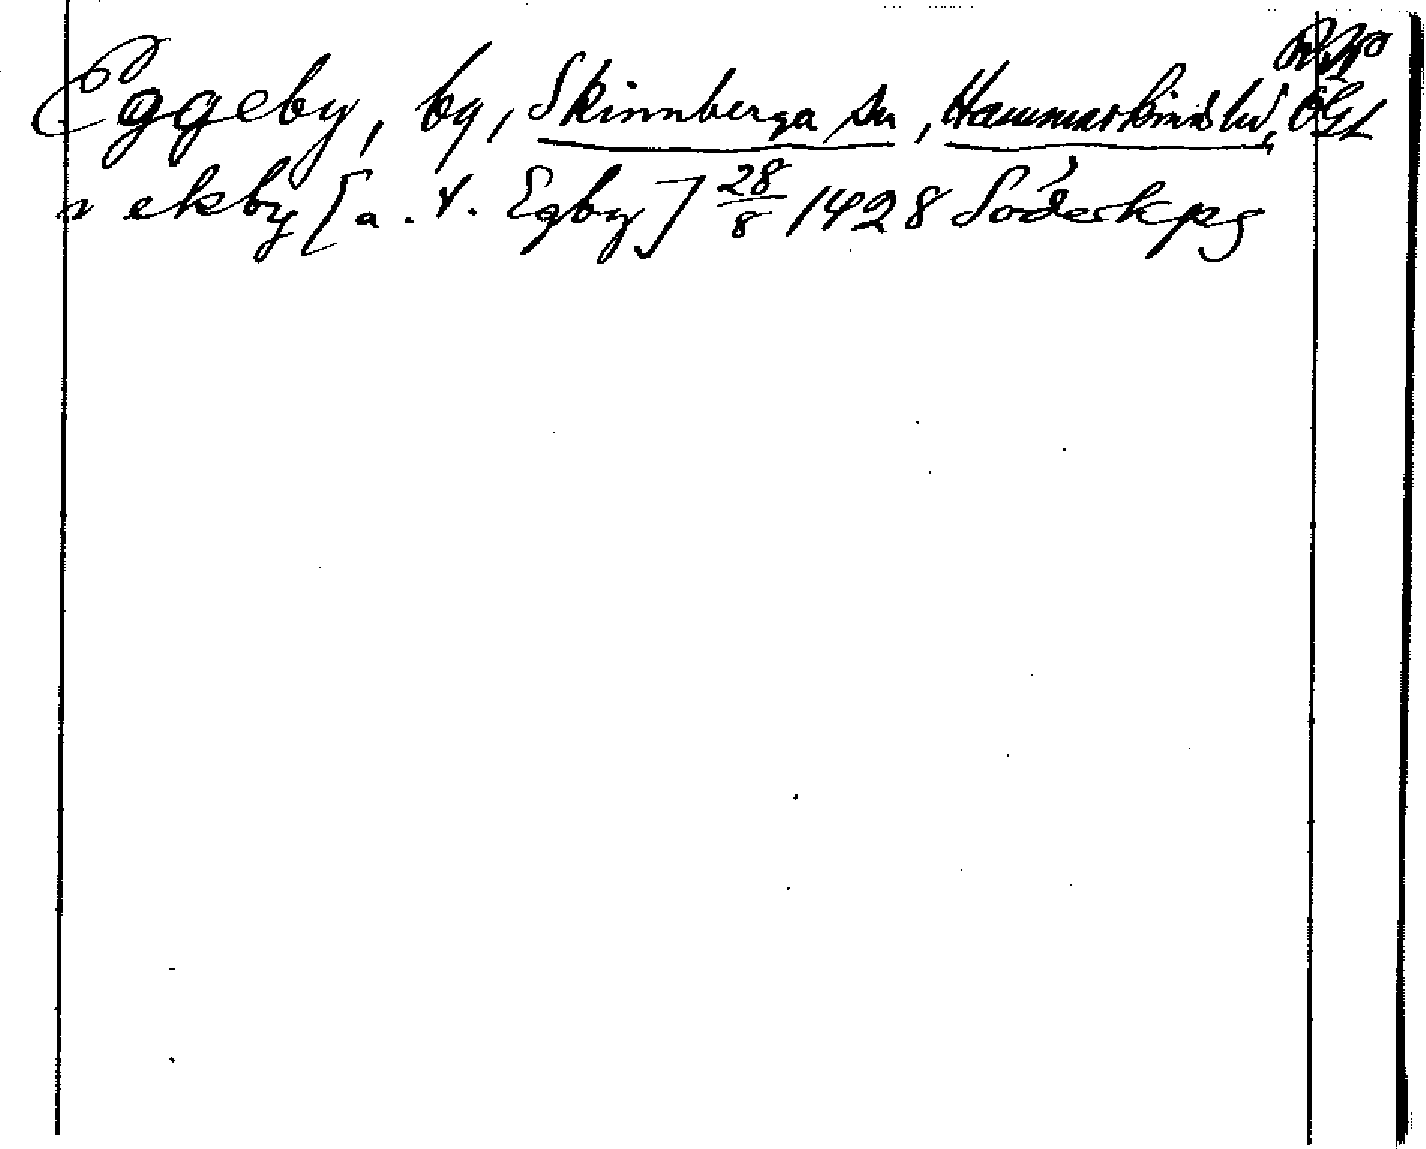 Eggeby, by, Skinnberga sn, Hammarkinds hd, ÖGL
ekby [a. t. Egby] 28/8 1428 Söderkpg